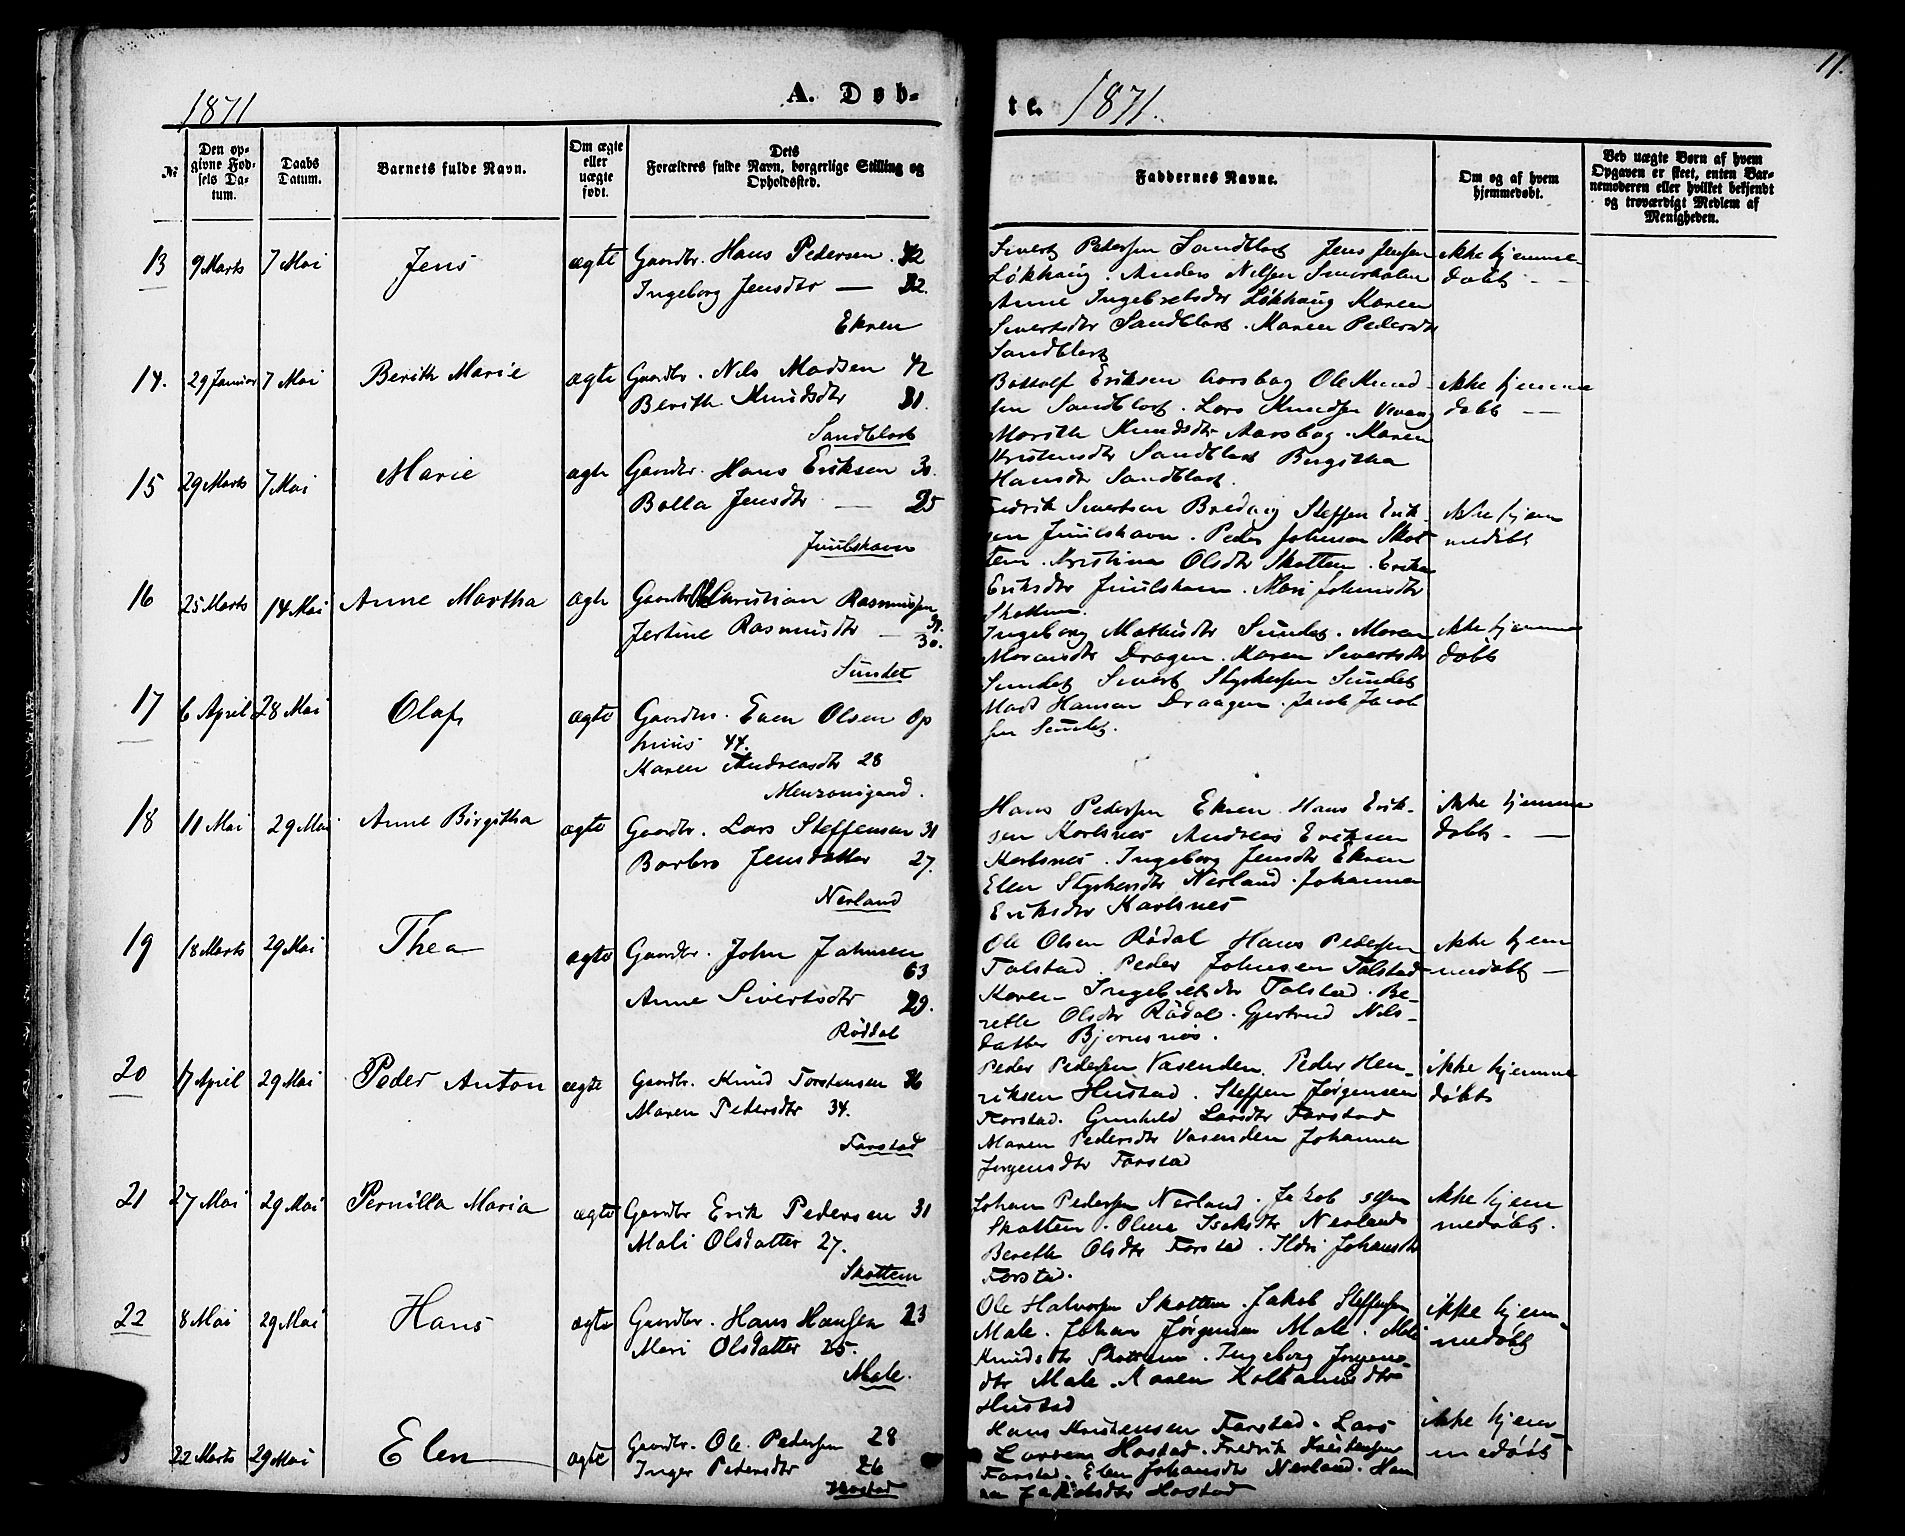 11.
1871
A. Døb-
te. 1871.
№
Den op-
givne Fød-
sels Da-
tum.
Daabs
Datum.
Barnets fulde Navn.
Om ægte
eller
uægte
født.
Dets
Forældres fulde Navn, borgerlige Stilling og
Opholdssted.
Faddernes Navne.
Om og af hvem
hjemmedøbt.
Ved uægte Børn af hvem
Opgaven er skeet, enten Bar-
nemoderen eller hvilket bekjendt
og troværdigt Medlem af
Menigheden.
13 9 Marts 7 Mai Jens ægte
Gaardbr. Hans Pedersen
Ingeborg Jensdtr — 32.
Ekren
Sivert Pedersen Sandblost Jens Jensen
Løkhaug. Anders Nilsen Smørholm
Anne Ingebretsdtr Løkhaug Karen
Sivertsdtr Sandblost. Maren Pedersdtr
Sandblost
ikke hjemme-
døbt —
14. 29 Januar 7 Mai Berith Marie ægte
Gaardbr. Nils Madsen 42
Berith Knudsdtr 31.
Sandblost
Bottolf Eriksen Aarsbog Ole Knud-
sen Sandblost. Lars Knudsen
Marith Knudsdtr Aarsbog. Karen
Kristensdtr Sandblost Birgitha
Hansdtr Sandblost.
ikke hjemme
døbt —
15 29 Marts 7 Mai Marie ægte
Gaardbr. Hans Eriksen 30.
Bolla Jensdtr — 25
Juulshavn
Fredrik Sivertsen Bredvig Steffen Erik-
sen Juulshavn. Peder Johnsen Skot
tem. Kristina Olsdtr Skottem. Erika
Eriksdtr Juulshavn. Mari Johnsdtr
Skottem.
ikke hjem
medøbt
16 25 Marts 14 Mai Anne Martha ægte
Gaardbr. Christian Rasmussen
Jertine Rasmusdtr — 30.
Sundet
Ingeborg Mathisdtr Sundet. Maren
Monsdtr Dragen. Karen Sivertsdtr
Sundet Sivert Styrkersen Sundet
Mads Hansen Draagen. Jacob Jacob
sen Sundet.
ikke hjemme
døbt
17 6 April 28 Mai Olaf ægte
Gaardbr. Even Olsen Op
huus 44.
Karen Andreasdtr 28
18 11 Mai 29 Mai Anne Birgitha ægte
Gaardbr. Lars Steffensen 31
Barbro Jensdatter 27.
Nerland
Hans Pedersen Ekren. Hans Erik-
sen Karlsnes Andreas Eriksen
Karlsnes. Ingeborg Jensdtr Ekren
Elen Styrkersdtr Nerland. Johanna
Eriksdtr Karlsnes
ikke hjemme
døbt. —
19 18 Marts 29 Mai Thea ægte
Gaardbr. John Johnsen
63
Anne Sivertsdtr 29.
Røddal
Ole Olsen Rødal Hans Pedersen
Tolstad. Peder Johnsen Tolstad
Karen Ingebretsdtr Tolstad. Be-
rette Olsdtr Rødal. Gjertrud Nils-
datter Bjørnsnøs.
ikke hjem
medøbt —
20 17 April 29 Mai Peder Anton ægte
Gaardbr. Knud Torstensen 36
Maren Pedersdtr 34.
Farstad
Peder Pedersen Vasenden. Peder Hen-
riksen Hustad. Steffen Jørgensen
Farstad. Gunhild Larsdtr Farstad
Maren Pedersdtr Vasenden Johanna
Jørgensdtr Farstad
ikke hjemme
døbt
21 27 Mai 29 Mai Pernilla Maria ægte
Gaardbr Erik Pedersen 31
Mali Olsdatter 27.
Skottem
Johan Pedersen Nerland. Jakob
Skottem. Olina Isaksdtr Nerland
Berette Olsdtr Farstad. Ildri Johansdtr
Farstad.
ikke hjem
medøbt.
22 8 Mai 29 Mai Hans ægte
Gaardbr. Hans Hansen 23
Mari Olsdatter 25.
Male.
Ole Halvorsen Skottem. Jakob Steffensen
Male. Johan Jørgensen Male. Mali
Knudsdtr Skottem. Ingeborg Jørgens-
dtr Male. Karen
Hustad
ikke hjem-
medøbt
22 Marts 29 Mai Elen ægte
Gaardbr. Ole Pedersen 28
Inger Pedersdtr 26
Hostad
Hans Kristensen Farstad. Lars
Larsen Hostad. Fredrik Kristensen
Farstad. Elen Johansdtr Nerland. Han
na Jakobsdtr Hostad
ikke hjem
medøbt